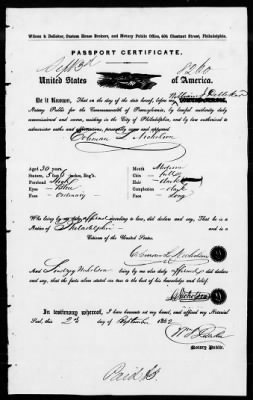 Wilson & Bellaker, Custom House Brokers, and Notary Public Office, 608 Chestnut Street, Philadelphia.
PASSPORT CERTIFICATE.
Sept 3d 8260
United States of America.
Be it Known, That on the day of the date hereof, before me, William J.
Notary Public for the Commonwealth of Pennsylvania, by lawful authority duly
commissioned and sworn, residing in the City of Philadelphia, and by law authorized to
administer oaths and affirmations, personally came and appeared
Coleman L Nicholson
Aged 30 years
Stature, 5 feet inches, Eng.
Forehead High
Eyes
Nose Ordinary
Mouth Medium
Chin full
Hair dark
Complexion dark
Face Long
Who being by me duly affirmed according to law, did declare and say, That he is a
Native of Philadelphia
Citizen of the United States.
Coleman L Nicholson
And Lindzey Nicholson being by me also duly affirmed did declare
and say, that the facts as above stated are true, to the best of his knowledge and belief.
L Nicholson
In testimony whereof, I have hereunto set my hand, and affixed my Notarial
Seal, this 2d day of September 1862
Notary Public.
Paid